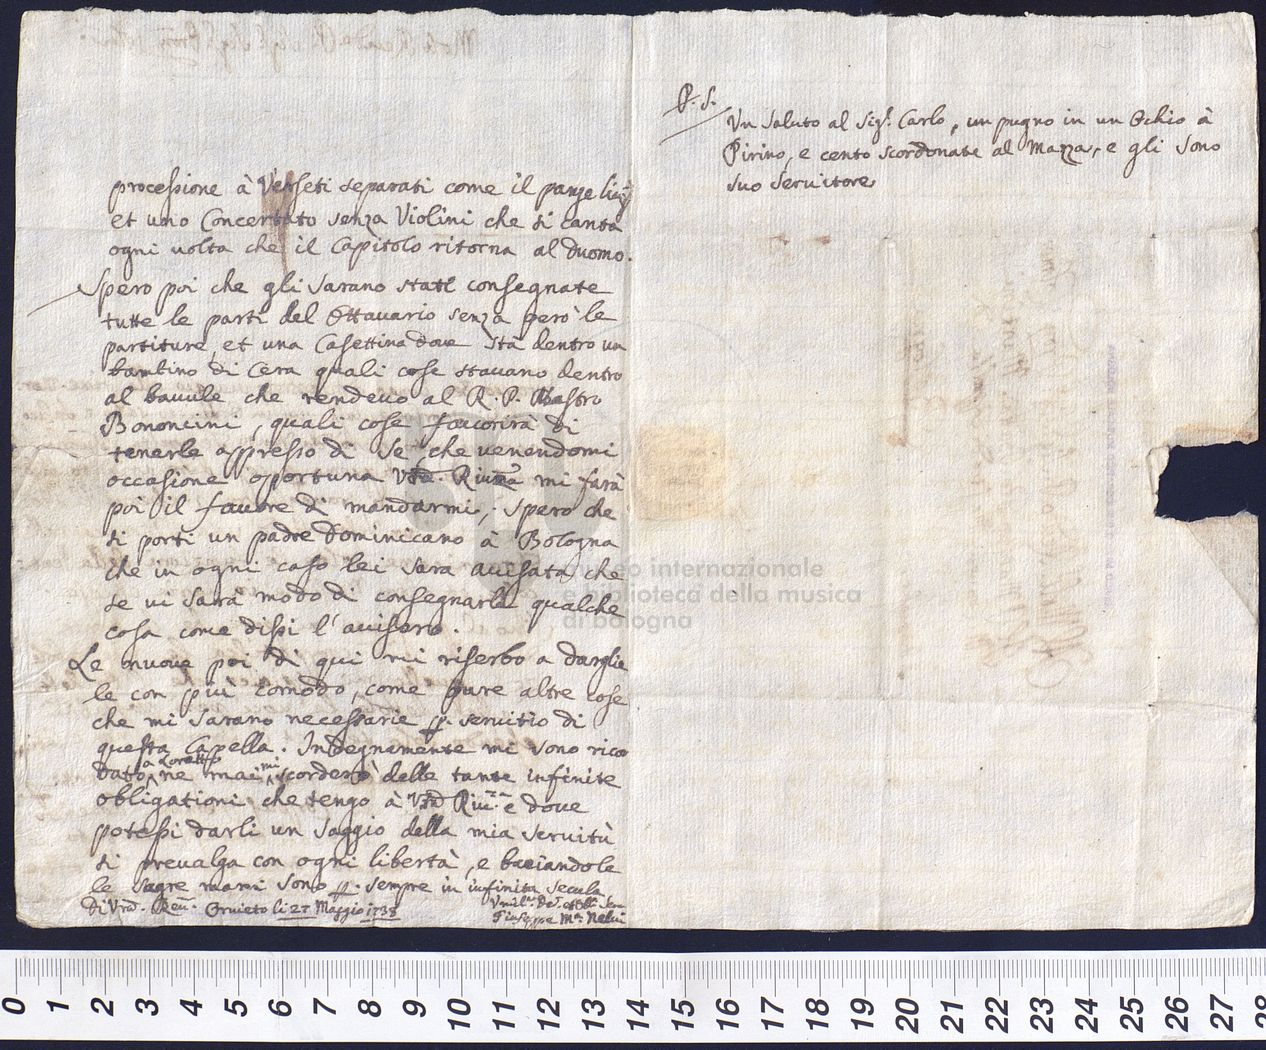 processione à Verseti separati come il pange
et uno Concertato senza Violini che si canta
ogni volta che il Capitolo ritorna al duomo.
Spero poi che gli sarano state consegnate
tutte le parti del Ottavario senza però le
partiture, et una Casettina dove stà dentro un
bambino di Cera quali cose stavano dentro
al bavule che rendevo al R. P. Mastro
Bononcini, quali cose favorirà di
tenerle appresso di se, che venendomi
occasione oportuna Vrã. Riuzã mi farà
poi il favore di mandarmi, spero che
si porti un padre Dominicano à Bologna
che in ogni caso lei sara avisata, che
se vi sarà modo di consegnarli qualche
cosa come dissi l'avisero.
Le nuove poi di qui mi riserbo a darglie
le con più comodo, come pure altre cose
che mi sarano necessarie p. servitio di
questa Capella. Indegnamente mi sono rico
a Loretto mi
dato, ne mai scorderò delle tante infinite
obligationi che tengo à Vrã Riu. e dove
potessi darli un saggio della mia servitù
si prevalga con ogni libertà, e baciandole
le sagre mani sono p. sempre in infinita secula
Di Vrã. Reu. Orvieto li 27 Maggio 1738
Umil. De. et Obl. Ser.
Giuseppe M. Nelvi
P. S.
Un saluto al Sig. Carlo, un pugno in un Ochio à
Pirino, e cento scordonate al Mazza, e gli sono
suo servitore
museo internazionale
e biblioteca della musica
di bologna
0 1 2 3 4 5 6 7 8 9 10 11 12 13 14 15 16 17 18 19 20 21 22 23 24 25 26 27 28